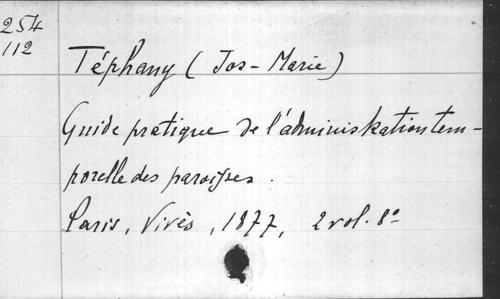 254
112
Téphany (Jos-Marie)
Guide pratique de l'administration tem-
porelle des paroisses.
Paris, Vivès, 1877, 2 vol. 8°